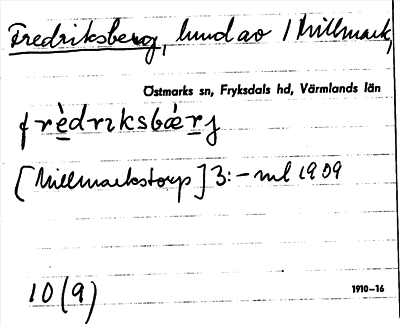 Fredriksberg, hmd av 1 Millmark,
Östmarks sn, Fryksdals hd, Värmlands län
frèdrıksbærj
[Millmarkstorp] 3:- ml 1909
10(9) 1910-16